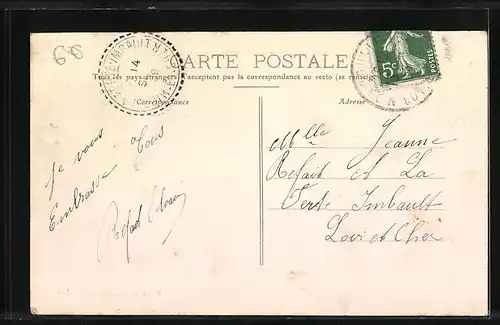 68
CARTE POSTALE
Tous les pays étrangers n'acceptent pas la correspondance au recto (se renseigner
Correspondance
Adresse
14
5c
Je vous
Embrasse Tous
Mlle Jeanne
Refait et La
Ferté Imbault
Loir et Cher